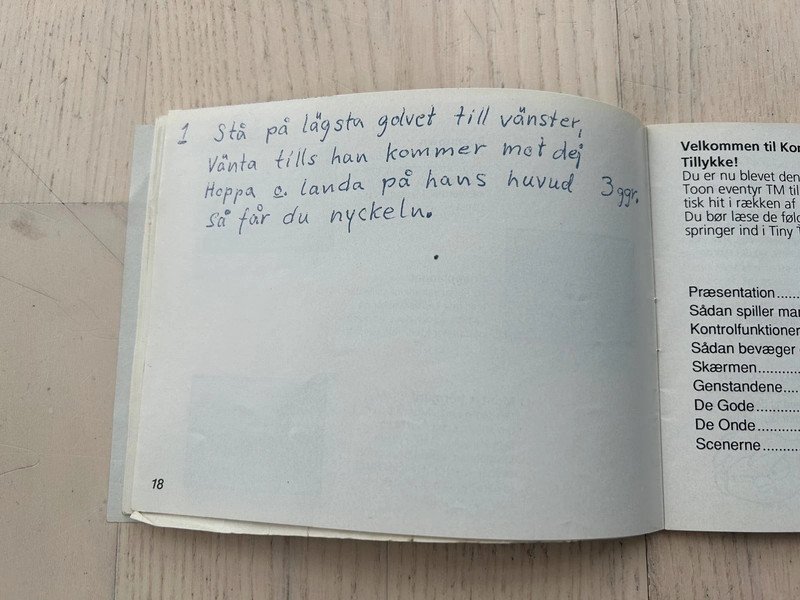 1 Stå på lägsta golvet till vänster,
Vänta tills han kommer mot dej
Hoppa o. landa på hans huvud 3 ggr.
så får du nyckeln.
18
Velkommen til Kon
Tillykke!
Du er nu blevet den
Toon eventyr TM til
tisk hit i rækken af
Du bør læse de følg
springer ind i Tiny T
Præsentation.....
Sådan spiller man
Kontrolfunktioner
Sådan bevæger
Skærmen..........
Genstandene.....
De Gode..........
De Onde..........
Scenerne..........